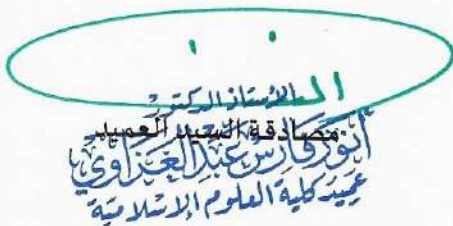 الأستاذ الدكتور
مصادقة السيد العميد
أنور فارس عبد العزاوي
عميد كلية العلوم الإسلامية